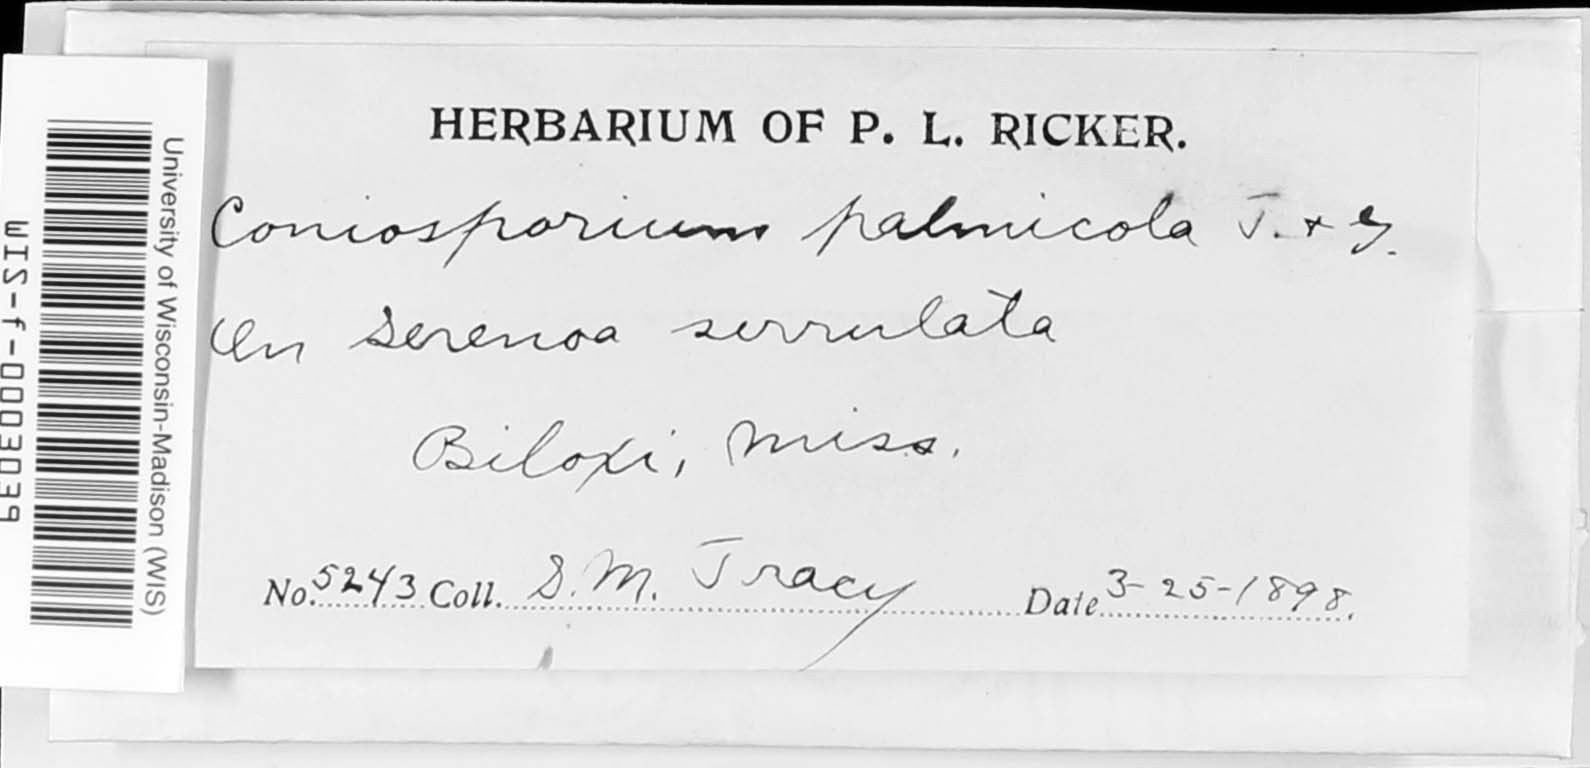 HERBARIUM OF P. L. RICKER.
Coniosporium palmicola T. + E.
On Serenoa serrulata
Biloxi, Miss.
No. 5243 Coll. S. M. Tracy Date 3-25-1898.
University of Wisconsin-Madison (WIS)
WIS-f-0003039